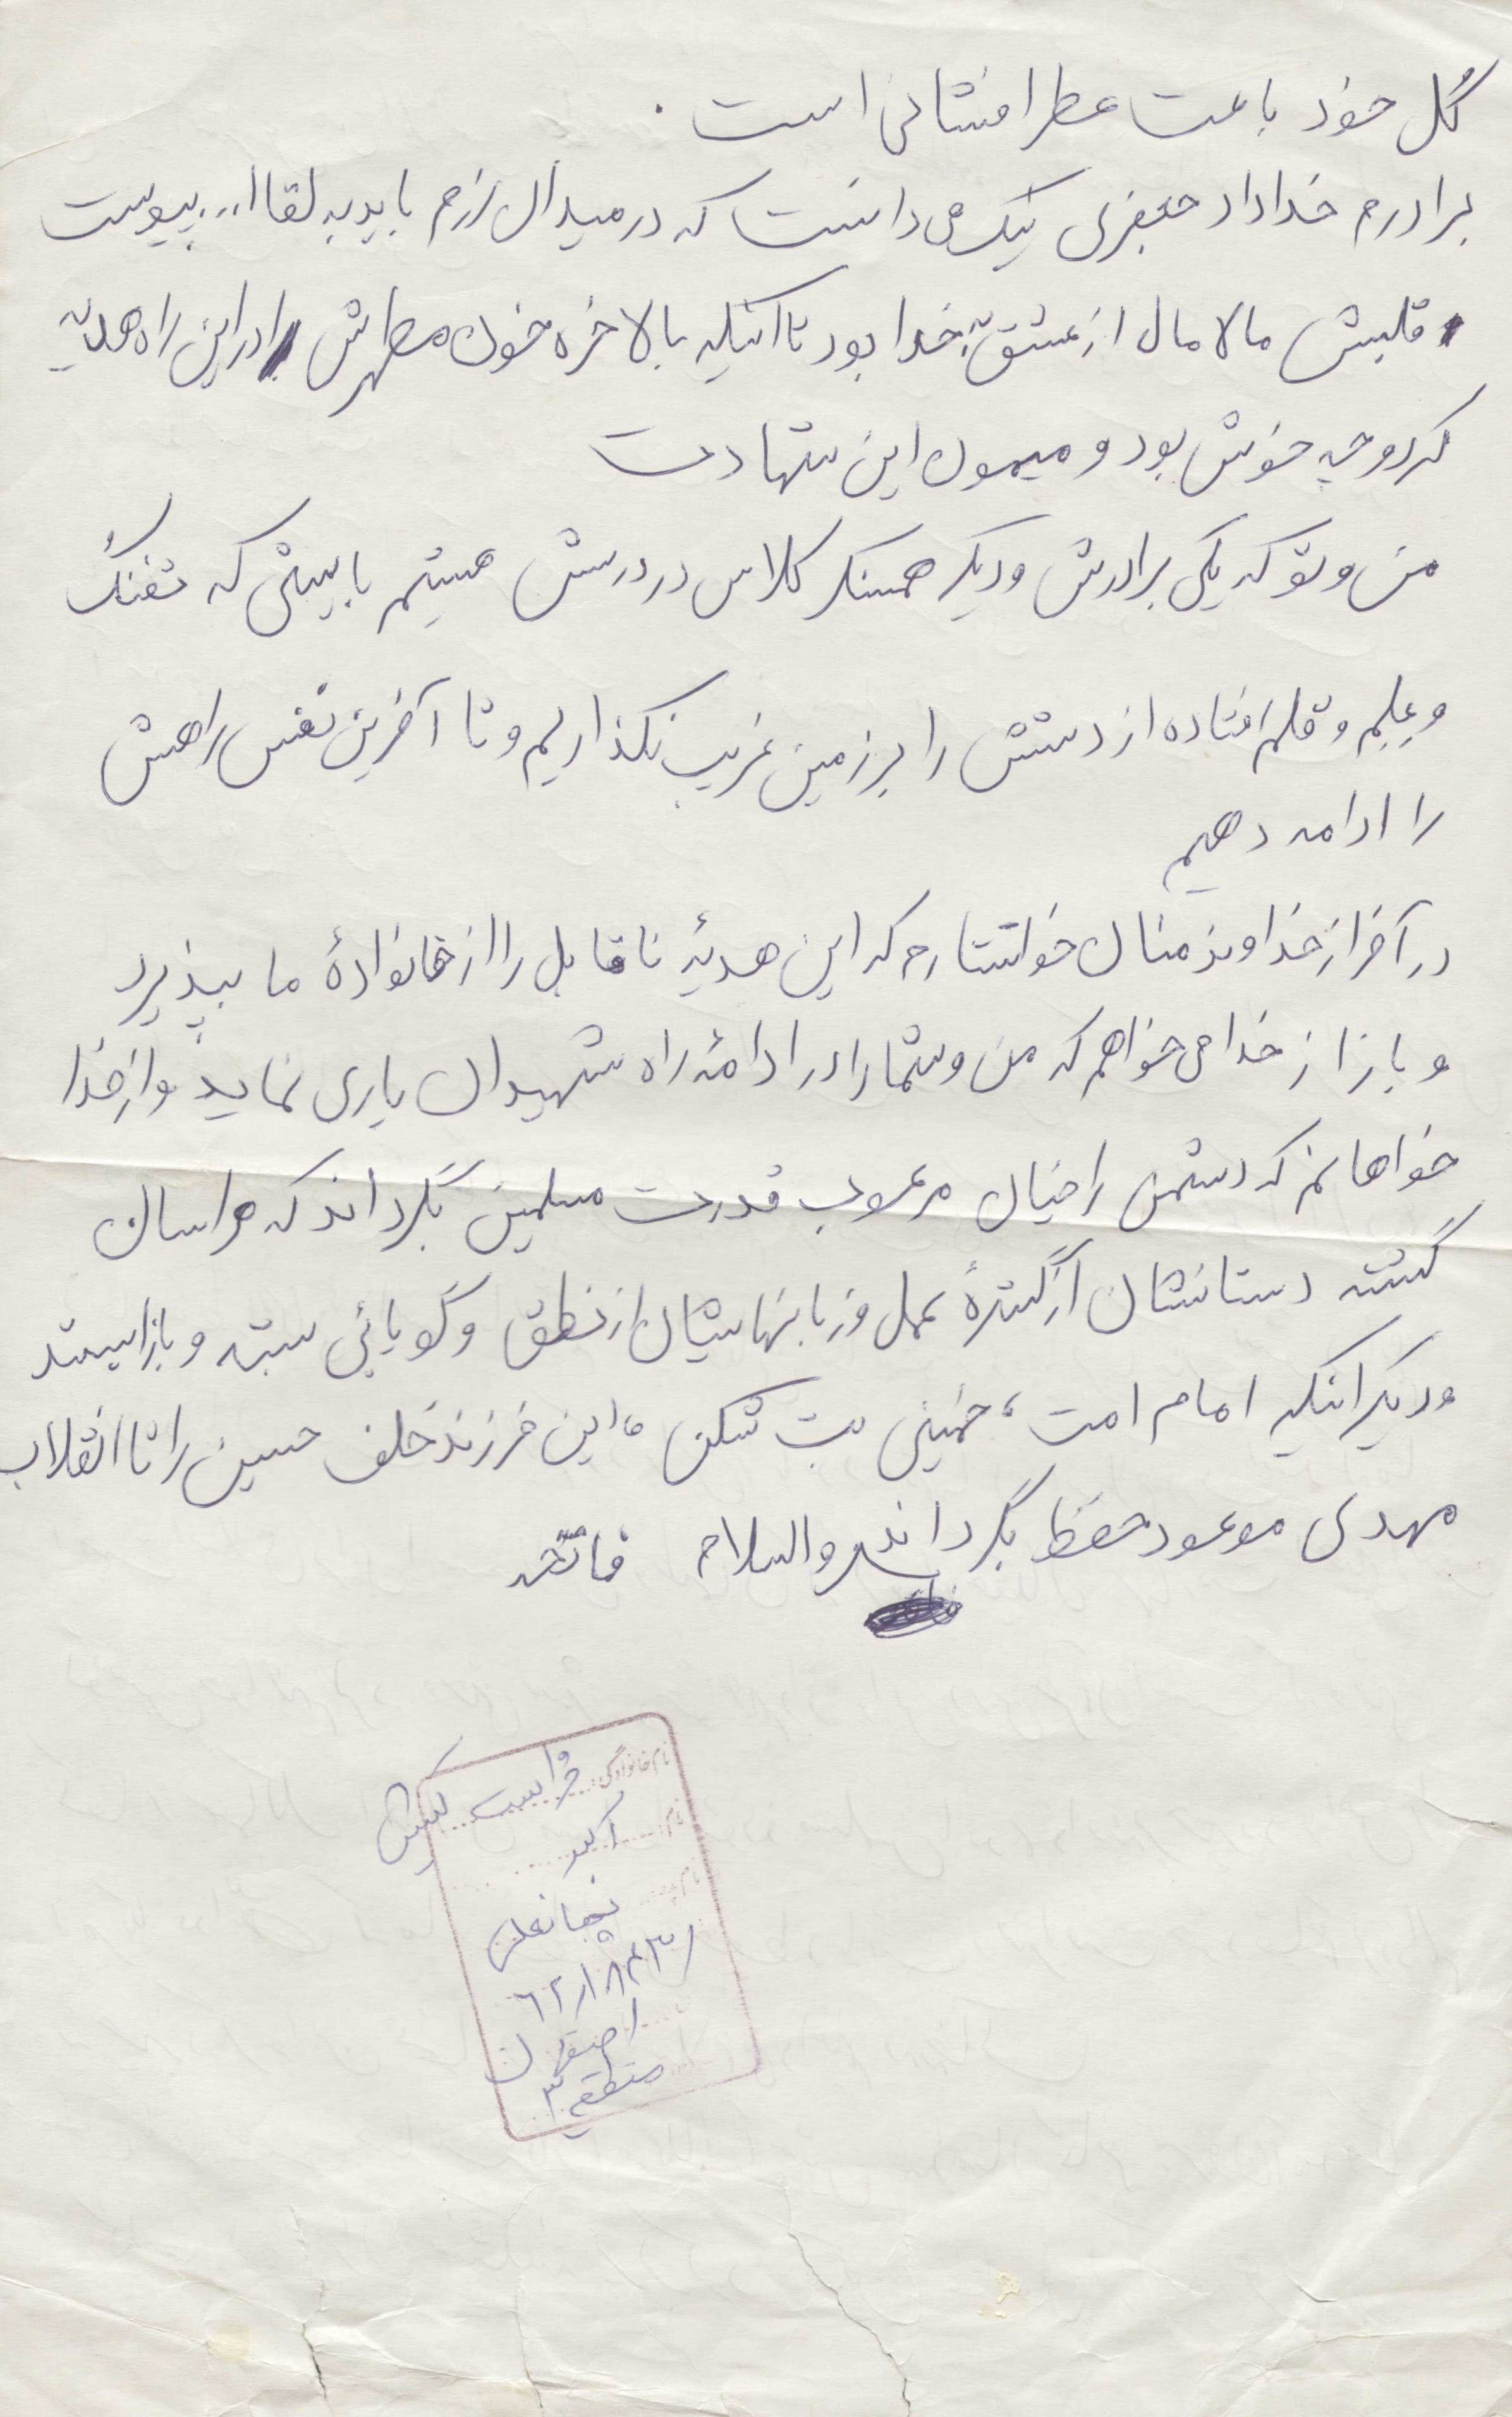 گل خود باعث عطرافشانی است.
برادرم خداداد جعفری نیک می دانست که در میدان رزم باید به لقاا... پیوست
قلبش مالامال از عشق به خدا بود تا آنکه بالاخره خون مطهرش را در این راه هدیه
کرد و چه خوش بود و میمون این شهادت
من و تو که یکی برادرش و دیگر همسنگر کلاس در درسش هستیم بایستی که تفنگ
و علم و قلم افتاده از دستش را بر زمین غریب نگذاریم و تا آخرین نفس راهش
را ادامه دهیم
در آخر از خداوند منان خواستارم که این هدیهٔ ناقابل را از خانوادهٔ ما بپذیرد
و باز از خدا می خواهم که من و شما را در ادامهٔ راه شهیدان یاری نماید و از خدا
خواهانم که دشمن را خیال مرعوب قدرت مسلمین بگرداند که هراسان
گشته دستانشان از گسترهٔ عمل و زبانهایشان از نطق و گویائی بسته و باز ایستد
و دیگر اینکه امام امت، خمینی بت شکن، این فرزند خلف حسین را تا انقلاب
مهدی موعود حفظ بگرداند والسلام فاتحه
نام خانوادگی:
نام: اکبر
نام پدر:
اصفهان
منطقه ۳